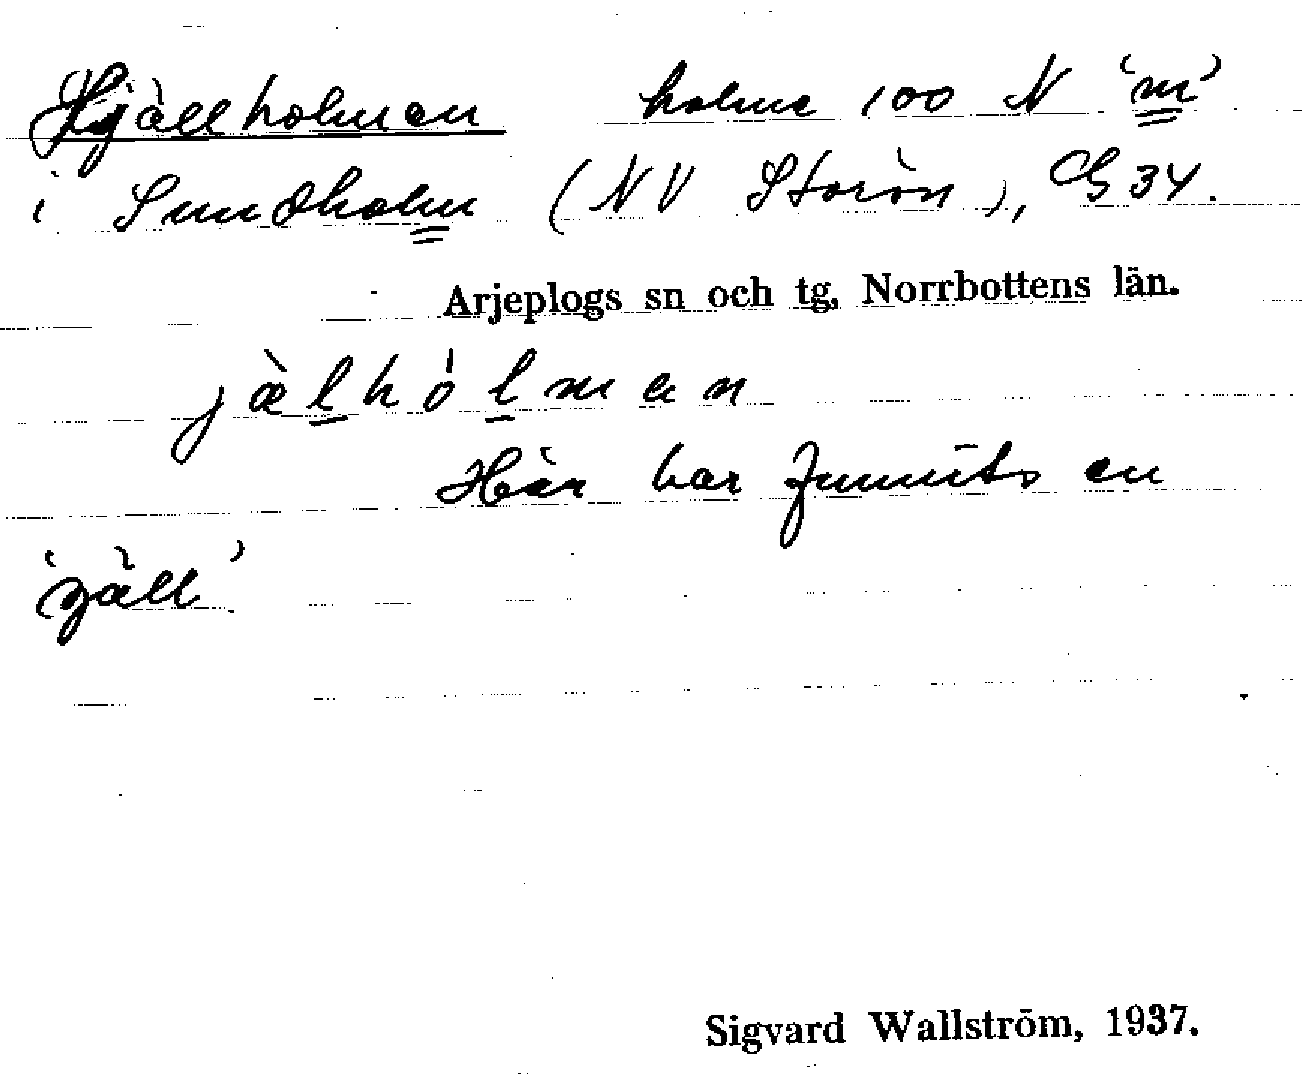 Hjällholmen holme 100 N 'm'
i Sundholm (NV Storön), G 34.
Arjeplogs sn och tg, Norrbottens län.
jälhólmen
Här har funnits en
'gäll'
Sigvard Wallström, 1937.